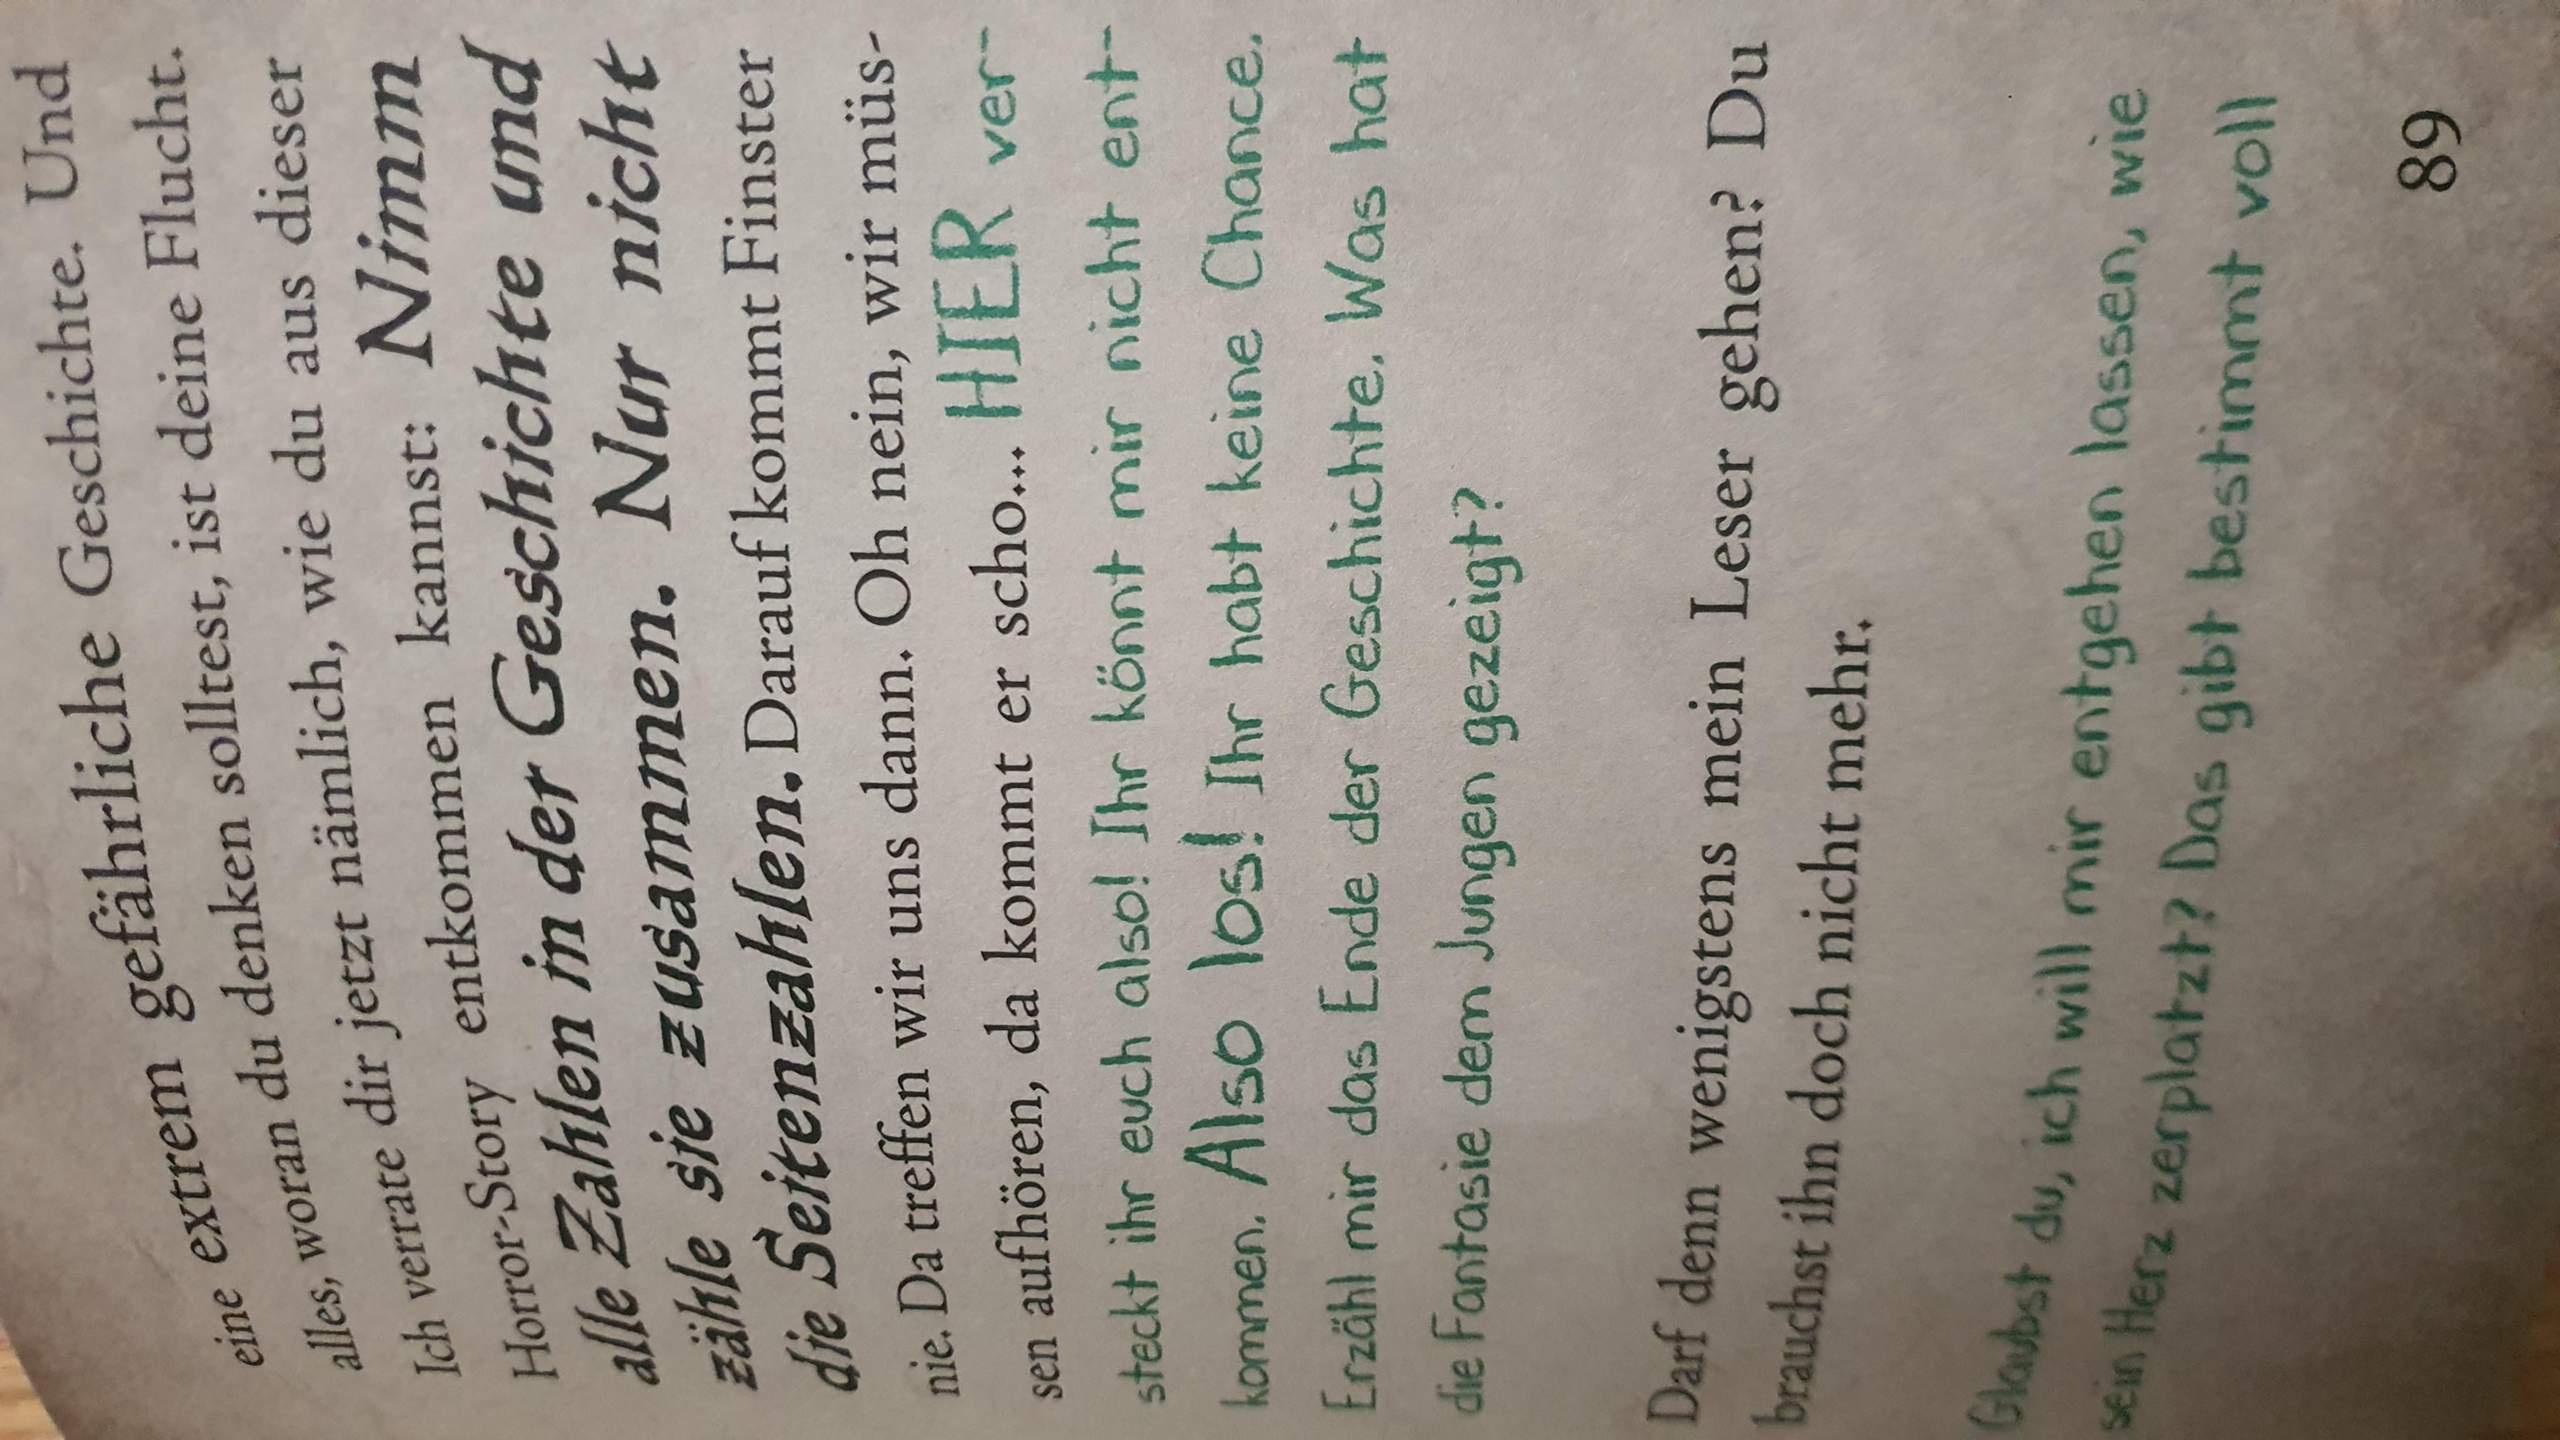 eine extrem gefährliche Geschichte. Und
alles, woran du denken solltest, ist deine Flucht.
Ich verrate dir jetzt nämlich, wie du aus dieser
Horror-Story entkommen kannst: Nimm
alle Zahlen in der Geschichte und
zähle sie zusammen. Nur nicht
die Seitenzahlen. Darauf kommt Finster
nie. Da treffen wir uns dann. Oh nein, wir müs-
sen aufhören, da kommt er scho... HIER ver-
steckt ihr euch also! Ihr könnt mir nicht ent-
kommen. Also los! Ihr habt keine Chance.
Erzähl mir das Ende der Geschichte. Was hat
die Fantasie dem Jungen gezeigt?
Darf denn wenigstens mein Leser gehen? Du
brauchst ihn doch nicht mehr.
Glaubst du, ich will mir entgehen lassen, wie
sein Herz zerplatzt? Das gibt bestimmt voll
89